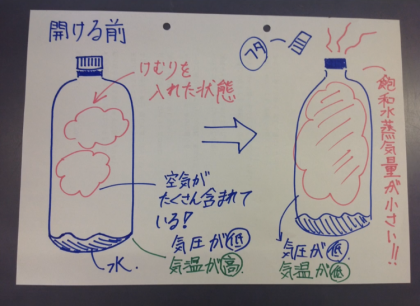 開ける前
けむりを
入れた状態
空気が
たくさん含まれて
いる!
気圧が低
気温が高
水
フタ
飽和水蒸気量が小さい!!
気圧が低
気温が低